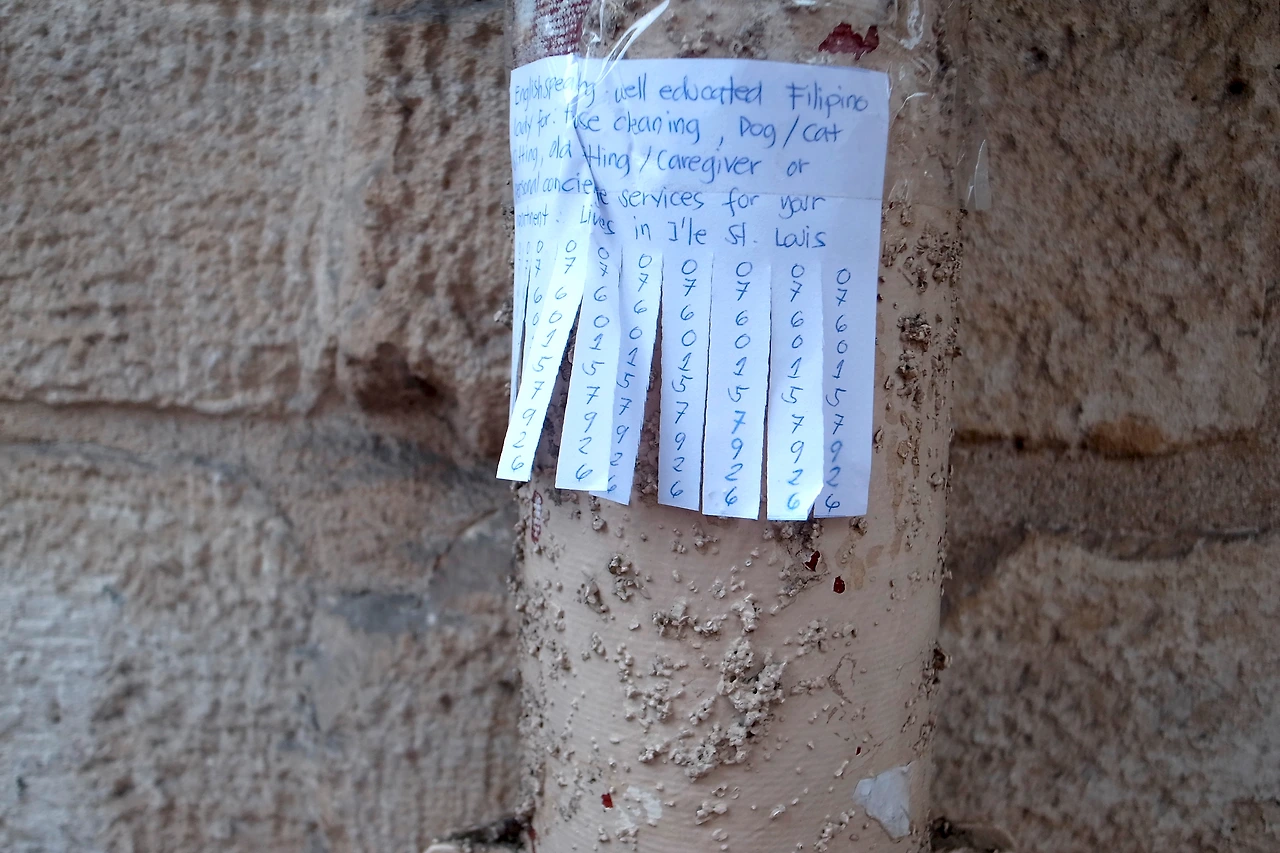 English speaking well educated Filipino
lady for: cleaning, Dog/cat
old /Caregiver or
services for your
Lives in I'le St. Louis
0760157926
0760157926
0760157926
0760157926
0760157926
0760157926
0760157926